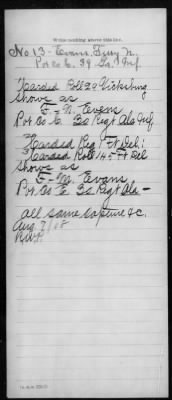 No writing above this line.
No 13 - Evans, Tiry N.
Pvt Co E. 39 Ga. Inf.
Harded Roll 20 Vicksburg
Shows as
E. N. Evans
Pvt Co E 23 Regt Ala Inf
Harded Reg 1 Ft Del;
Harded Roll 145 Ft Del
Shows as
E. M. Evans
Pvt Co E 23 Regt Ala -
all same capture &c.
Aug 7/08